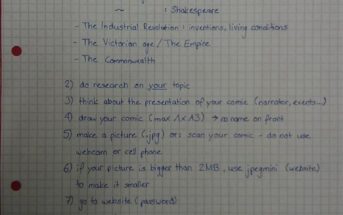 ~ : Shakespeare
- The Industrial Revolution : inventions, living conditions
- The Victorian age / The Empire
- The Commonwealth
2) do research on your topic
3) think about the presentation of your comic (narrator, events...)
4) draw your comic (max 1xA3) → no name on front
5) make a picture (.jpg) or: scan your comic - do not use
webcam or cell phone
6) if your picture is bigger than 2MB, use jpegmini (website)
to make it smaller
7) go to website (password)